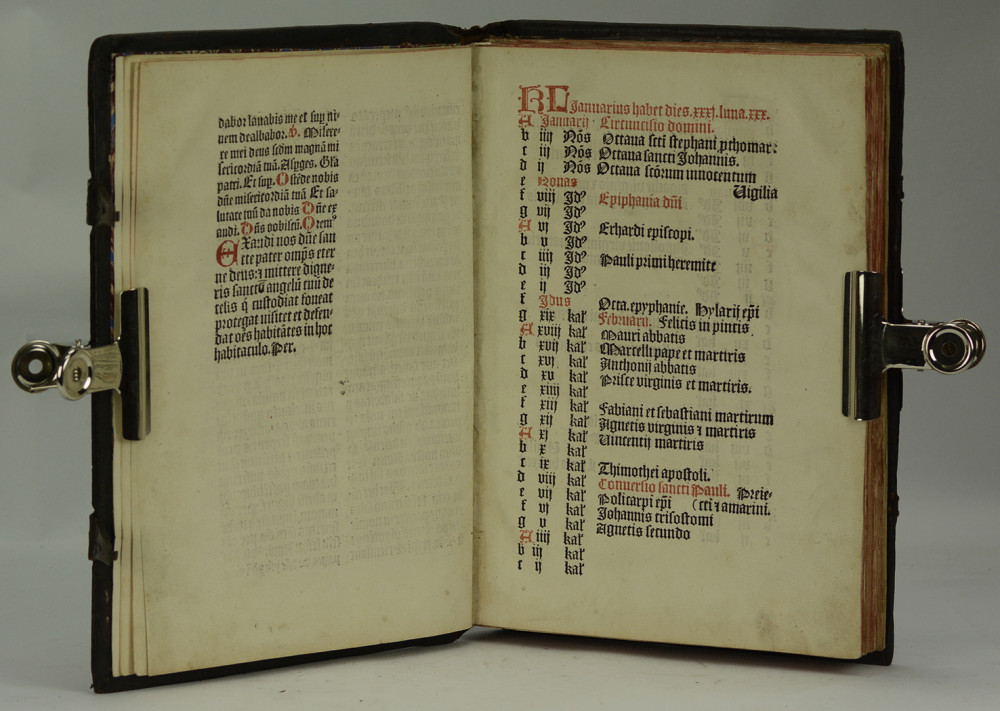 dabor lanabis me et sup ni-
uem dealbabor. Misere-
re mei deus scdm magnam mi
sericordiā tuā. Asperges. Gla
patri. Et sup. Ostēde nobis
dn̄e misericordiā tuā Et sa-
lutare tuū da nobis Dn̄e ex
audi. Dn̄s vobiscū. Orem⁹
EXaudi nos dn̄e san
cte pater omp̄s eter
ne deus: ⁊ mittere digne-
ris sanctū angelū tuū de
celis q̄ custodiat foueat
protegat visitet et defen-
dat oēs habitātes in hoc
habitaculo. Per.
KL Januarius habet dies .xxxj. luna .xxx.
A Januarij Circuncisio domini.
b iiij Nōs Octaua scti stephani pthomar:
c iij Nōs Octaua sancti Johannis.
d ij Nōs Octaua scōrum innocentum
e Nonas Vigilia
f viij Jd⁹ Epiphania dn̄i
g vij Jd⁹
A vj Jd⁹ Erhardi episcopi.
b v Jd⁹
c iiij Jd⁹ Pauli primi heremite
d iij Jd⁹
e ij Jd⁹
f Jdus Octa. epyphanie. Hylarij ep̄i
g xix kal Februarij. Felicis in pincis
A xviij kal Mauri abbatis
b xvij kal Marcelli pape et martiris
c xvj kal Anthonij abbatis
d xv kal Prisce virginis et martiris.
e xiiij kal
f xiij kal Fabiani et sebastiani martirum
g xij kal Agnetis virginis ⁊ martiris
A xj kal Vincentij martiris
b x kal
c ix kal Thimothei apostoli.
d viij kal Conuersio sancti Pauli. Preie-
e vij kal Policarpi ep̄i (cti ⁊ amarini.
f vj kal Johannis crisostomi
g v kal Agnetis secundo
A iiij kal
b iij kal
c ij kal